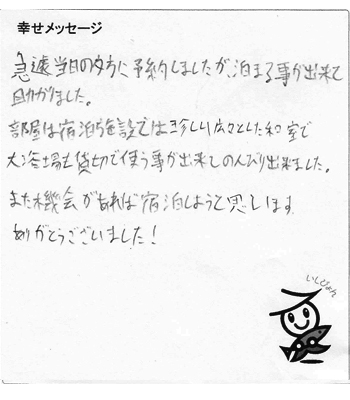 幸せメッセージ
急遽当日の夕方に予約しましたが、泊まる事が出来て
助かりました。
部屋は宿泊施設では珍しい広々とした和室で
大浴場も貸切で使う事が出来しのんびり出来ました。
また機会があれば宿泊しようと思います
ありがとうございました！